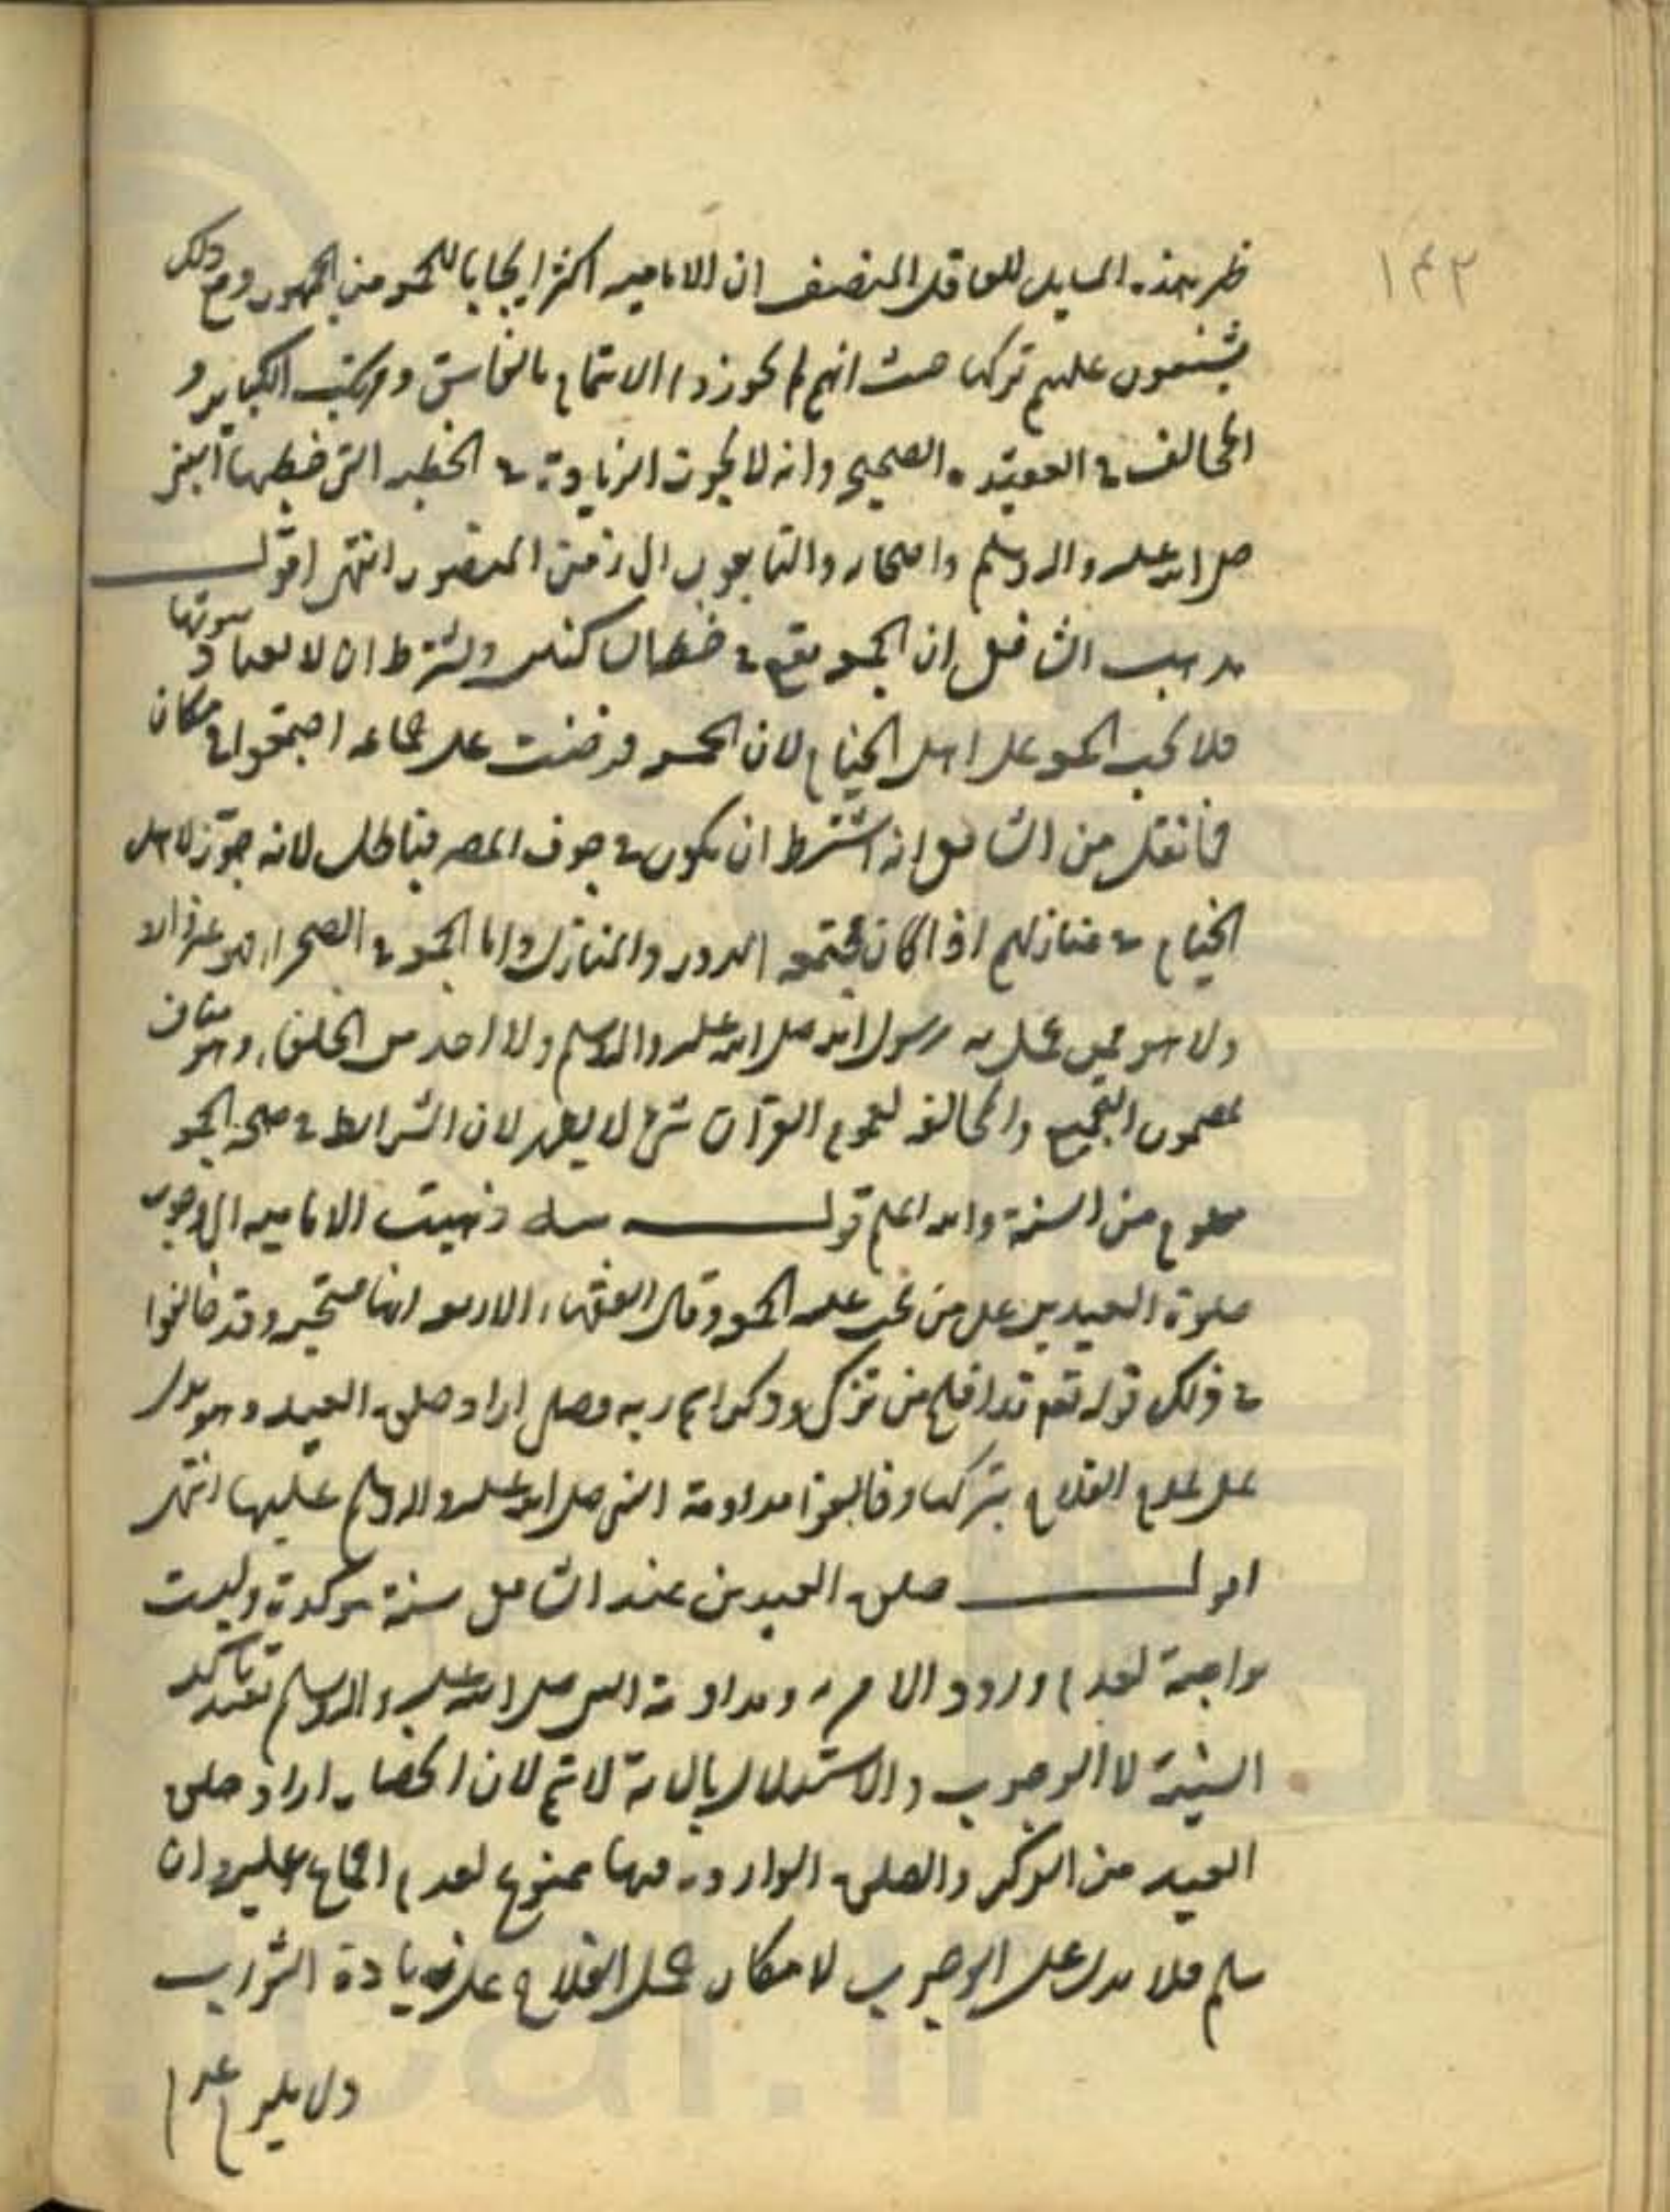 ١٤٣
ظهر بهذه المسايل للعاقل المنصف ان الاماميه اكثر ايجابا للجمعه من الجمهور ومع ذلك
يشنعون عليهم تركها حيث انهم لم يجوزوا الايتمام بالفاسق ومرتكب الكباير و
المخالف في العقيده الصحيح وانه لا يجوز الزيادة في الخطبه التى خطبها النبى
صلى الله عليه واله وسلم واصحابه والتابعون الى زمن المنصور انتهى اقول
مذهب الشافعى ان الجمعه تقع في خطه الساكنين ويشترط ان لا
فلا تجب الجمعه على اهل الخيام لان الجمعه فرضت على جماعه اجتمعوا في مكان
فما نقل من الشافعى انه اشترط ان يكون في جوف المصر فباطل لانه جوّز لاهل
الخيام في منازلهم اذا كان مجتمعه الدور والمنازل واما الجمعه في الصحرا فهو
ولا هو مما عمل به رسول الله صلى الله عليه واله وسلم ولا احد من الخلفاء وهو مناف
لمضمون التجميع والمخالفه لعموم القرآن شئ لا يظهر لان الشرايط في صحة الجمعه
معلوم من السنة والله اعلم قوله ذهبت الاماميه الى وجوب
صلوة العيدين على من تجب عليه الجمعه وقال الفقهاء الاربعه انها مستحبه وقد خالفوا
في ذلك قوله تعم قد افلح من تزكى وذكر اسم ربه فصلى اراد صلوة العيد وهو يدل
على عدم الفلاح بتركها وخالفوا مداومة النبى صلى الله عليه واله وسلم عليها انتهى
اقول صلوة العيدين عند الشافعى سنة مؤكدة وليست
بواجبة لعدم ورود الامر به ومداومة النبى صلى الله عليه واله وسلم تفيد تاكد
السنية لا الوجوب والاستدلال بالاية لا يتم لان اختصاص اراد صلوة
العيد من الذكر والصلوة الوارده فيها ممنوع لعدم الاجماع عليه وان
سلم فلا يدل على الوجوب لامكان حمل الفلاح على زيادة الثواب
ولا يلزم عدم